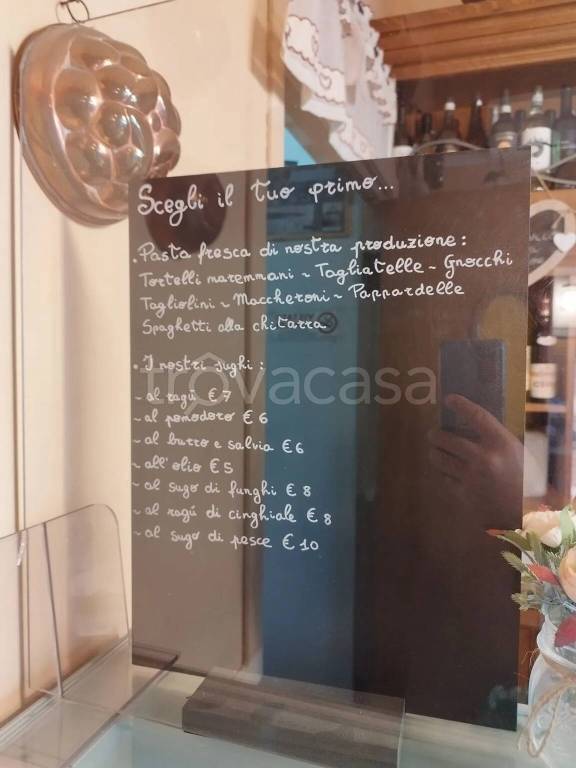 Scegli il tuo primo...
• Pasta fresca di nostra produzione:
Tortelli maremmani ~ Tagliatelle ~ Gnocchi
Tagliolini ~ Maccheroni ~ Pappardelle
Spaghetti alla chitarra
• I nostri sughi:
trovacasa
~ al ragú € 7
~ al pomodoro € 6
~ al burro e salvia € 6
~ all'olio € 5
~ al sugo di funghi € 8
~ al ragú di cinghiale € 8
~ al sugo di pesce € 10